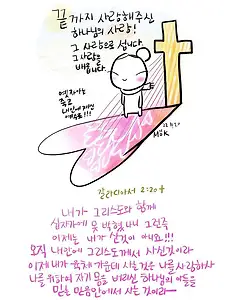 끝까지 사랑해주신
하나님의 사랑!
그 사랑으로 섭니다
그 사랑을
배웁니다..
옛자아는
죽고
내안에계신
예수님!!!
MiK
갈라디아서 2:20
내가 그리스도와 함께
십자가에 못 박혔나니 그런즉
이제는 내가 산것이 아니요!!!
오직 내안에 그리스도께서 사신것이라
이제 내가 육체 가운데 사는것은 나를 사랑하사
나를 위하여 자기 몸을 버리신 하나님의 아들을
믿는 믿음안에서 사는 것이라